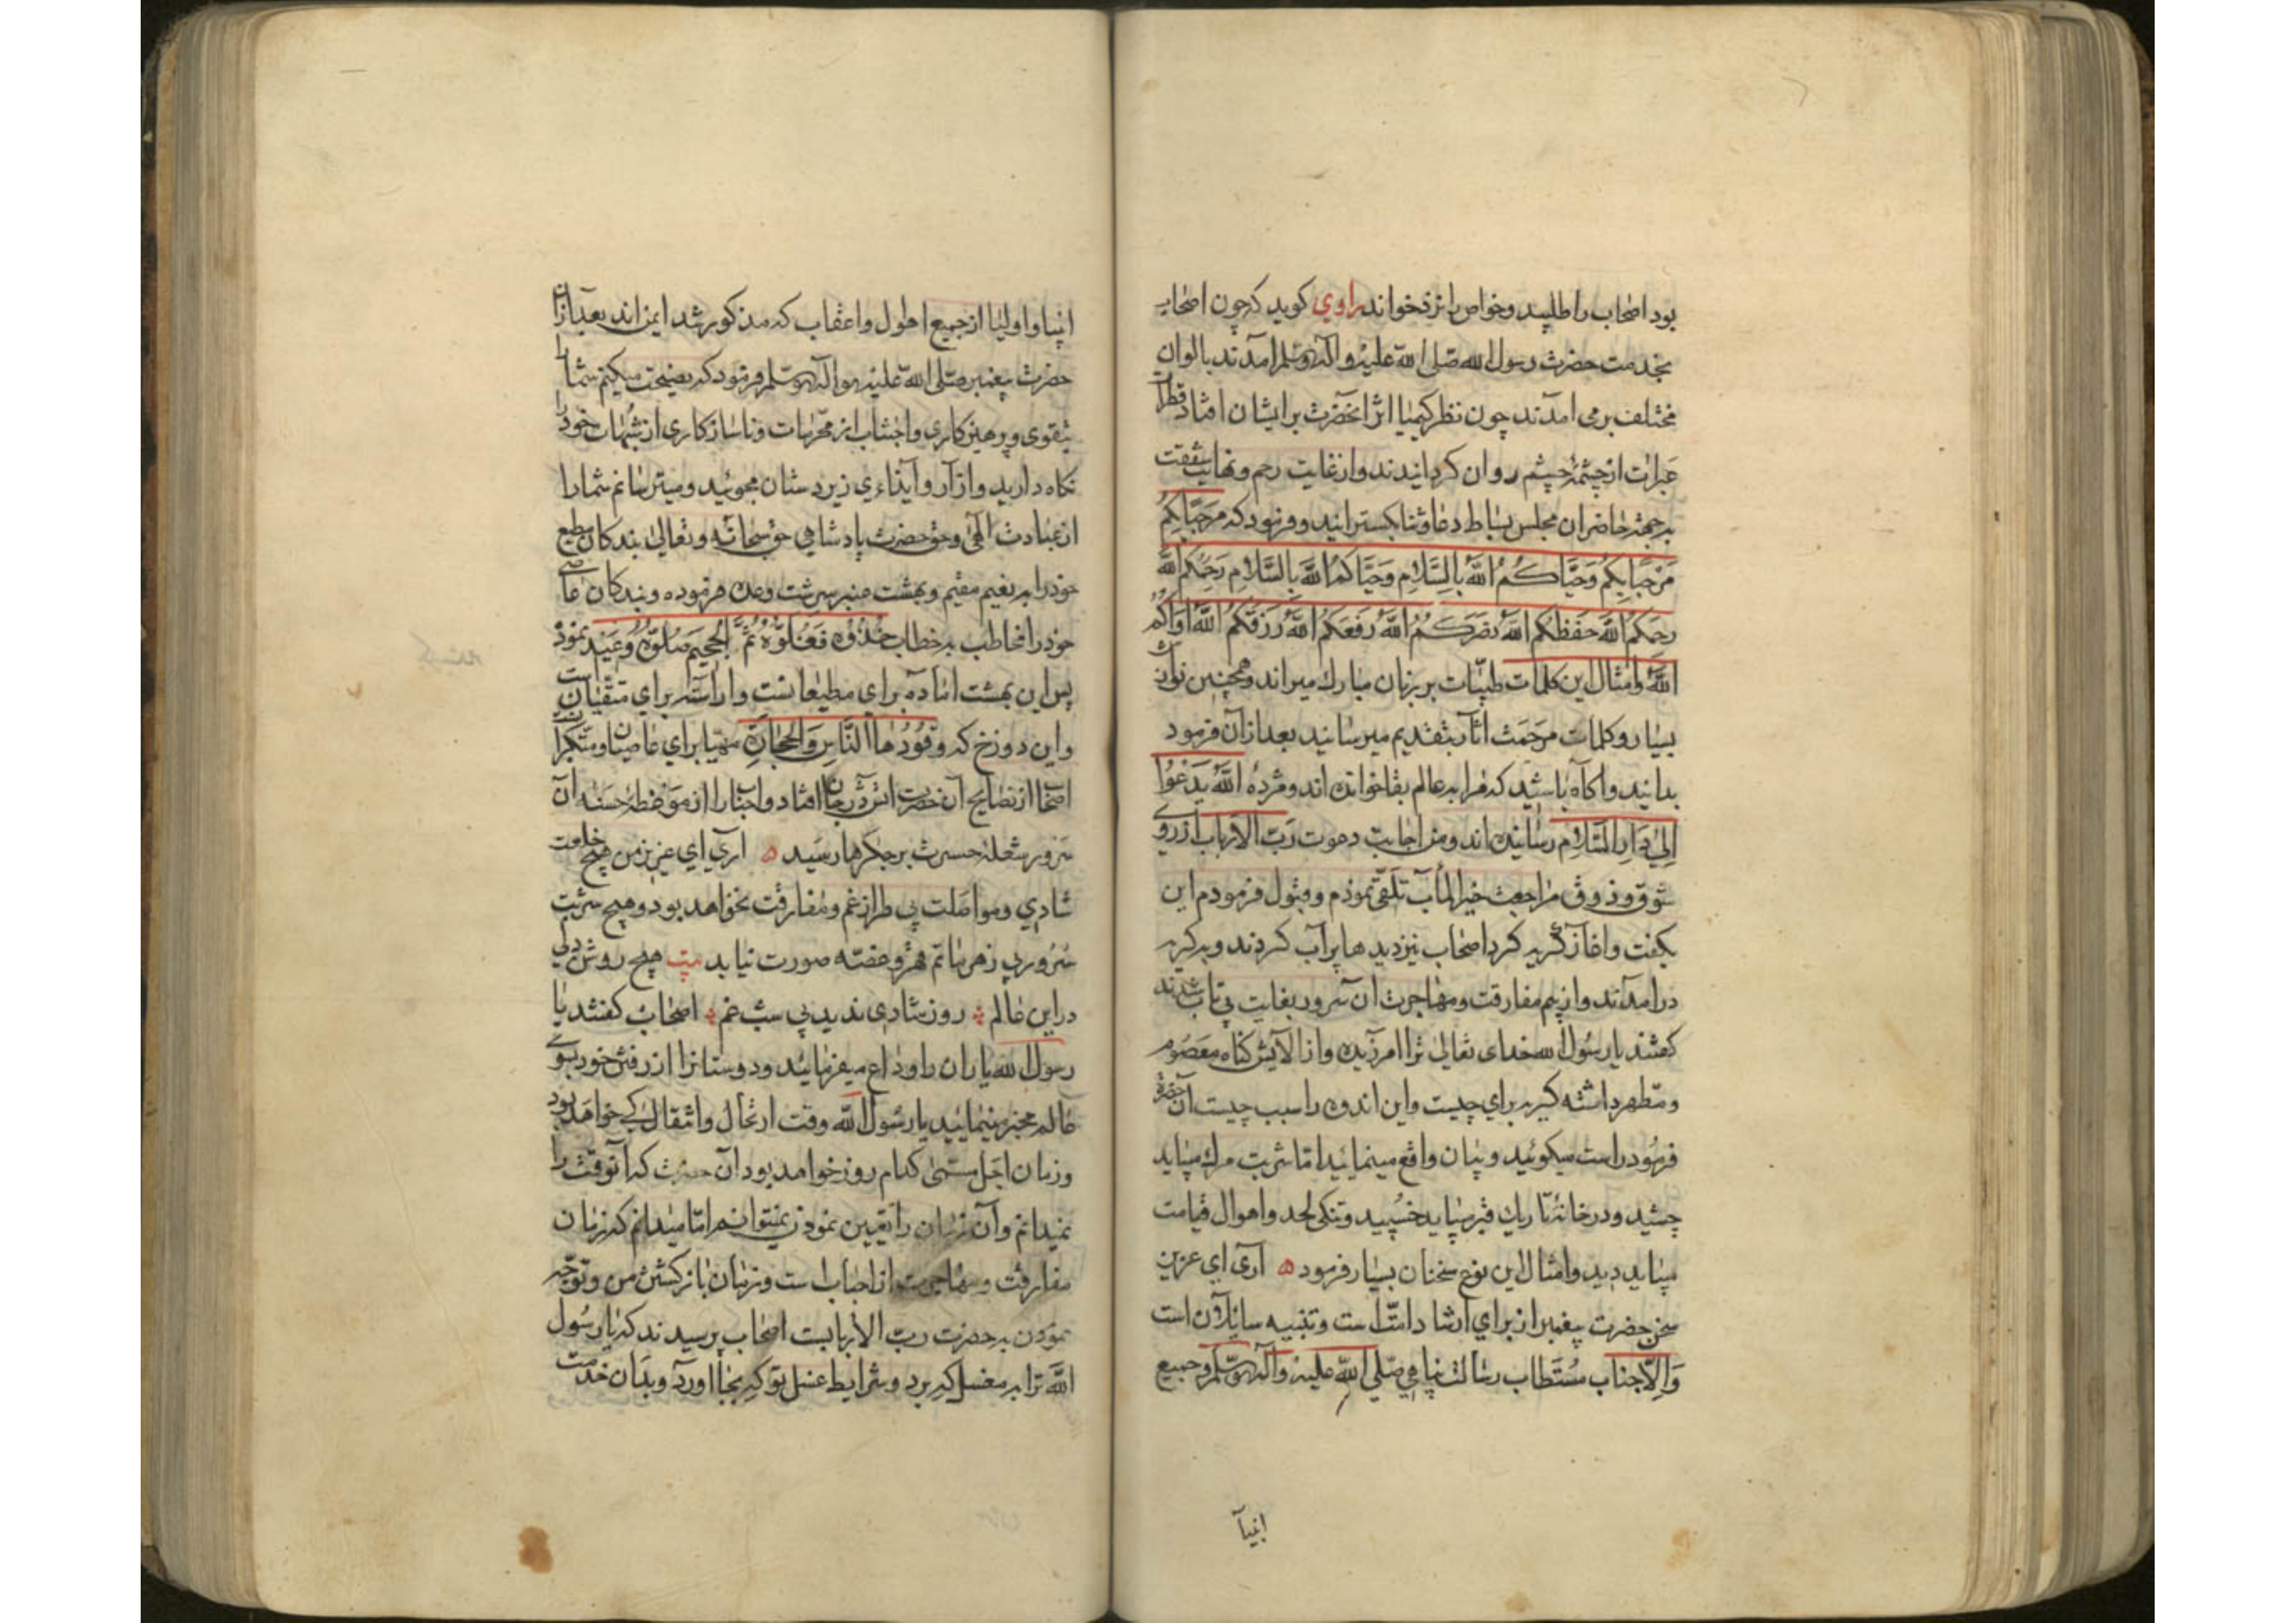 بود اصحاب را طلبید و خواص را نزد خواند راوی کوید که چون اصحاب
بخدمت حضرت رسول الله صلی الله علیه و آله وسلم امدند بالوان
مختلف برمی امدند چون نظر کیمیا اثر انحضرت بر ایشان افتاد قطرات
عبرات از چشمهٔ چشم روان کردانیدند و از غایت رحم و نهایت شفقت
بر جمله حاضران مجلس بساط دعا و ثنا بکسترانید و فرمود که مَرحَبًا بِکُم
مَرْحَبًا بِکُم وَحَیَّاکُمُ اللَّهُ بِالسَّلَامِ وَحَیَّاکُمُ اللَّهُ بِالسَّلَامِ رَحِمَکُمُ اللَّهُ
رحمکُمُ اللَّهُ حَفَظَکُم اللَّهُ نصَرَکُمُ اللَّهُ رَفَعَکُمُ اللَّهُ رَزَقَکُمُ اللَّهُ اوَاکُمُ
اللَّهُ و امثال این کلمات طیّبات بر زبان مبارك میراند و همچنین نوازش
بسیار و کلمات مرحَمَت آثار بتقدیم میرسانید بعد از آن فرمود
بدانید و آکاه باشید که مرا بر عالم بقا خوانده اند و مژدهٔ اللَّهُ یَدْعُوا
اِلیٰ دَارِ السَّلَامِ رسانیده اند و من اجابت دعوت رَبّ الاَرباب از روی
شوق و ذوق مراجعت خیر المآب تلقّی نموذم و قبول فرمودم این
بکفت و اغاز کریه کرد اصحاب نیز دیدها پر آب کردند و بر کریه
درامدند و از بیم مفارقت و مهاجرت ان سرور بغایت بی تاب شدند
کفتند یا رسُول الله خدای تعالیٰ ترا امرزیده و از الایش کناه معصُوم
و مطهر داشته کریه برای چیست و این اندوه را سبب چیست آن حضرة
فرمُود راست میکوئید و بیان واقع مینمائید اما شربت مرك میباید
چشید و در خانهٔ تاریك قبر میباید خسپید و تنکی لحد و اهوال قیامت
میباید دید و امثال این نوع سخنان بسیار فرمود ه اری ای عزیز
سخن حضرت پیغمبر از برای ارشاد امّت است و تنبیه سایلان است
وَ اِلّا جناب مُستَطاب رسالت پناهی صلی الله علیه و آله وسلم و جمیع
انبیآ
انبیا و اولیا از جمیع اهوال و اعقاب که مذکور شد ایمن اند بعد از آن
حضرت پیغمبر صلی الله علیه و آله وسلم فرمود که نصیحت میکنم شما را
بتقوی و پرهیزکاری و اجتناب از محرّمات و ناسازکاری از شبُهات خود را
نکاه دارید و از آزار و ایذاءی زیردستان مجوئید و میترسانم شما را
از عبادت الهی و حق حضرت پادشاهی حق سُبحانَه و تعالیٰ بندکان مطیع
خود را بر نعیم مقیم و بهشت عنبر سرشت وعده فرموده و بندکان عاصی
خود را مخاطب بر خطاب خُذُوهُ فَغُلُّوهُ ثُمَّ الْجَحِیمَ صَلُّوهُ وَعَید نموذ
پس این بهشت اماده برای مطیعانست و اراسته برای متقیان ست
و این دوزخ که وَقُودُهَا النَّاسُ وَالْحِجَارَةُ مهیّا برای عاصیان و متکبّران
اصحاب از نصایح آن حضرت اثر در جان افتاد و احبّا را از موعظهٔ حسنه آن
سَرور شعلهٔ حسرت بر جکرها رسید ه اری ای عزیز من هیچ خلوت
شادی و مواصلت بی طراز غم و مفارقت نخواهد بود و هیچ شربت
سُرُور بی زهر ماتم قهر و غصّه صورت نیابد بیت هیچ روشن دلی
در این عالم روز شادی ندید بی شب غم اصحاب کفتند یا
رسول الله یاران را وداع میفرمائید و دوستانرا از رفتن خود بسوی
عالم مخبر مینمائید یا رسُول الله وقت ارتحال و انتقال کی خواهد بود
و زمان اجَل مسمّیٰ کدام روز خواهد بود آن حضرت که آنوقت را
نمیدانم و آن زمان را تعیین نموذن نمیتوانم امّا میدانم که زمان
مفارقت و مهاجرت از احباب است و زمان بازکشتن من و توجّه
نموذن بر حضرت ربّ الاربابست اصحاب پرسیدند که یا رسُول
اللَّه ترا بر مغسل که برد و شرایط غسل تو که بجا اورد و بدان خدمت